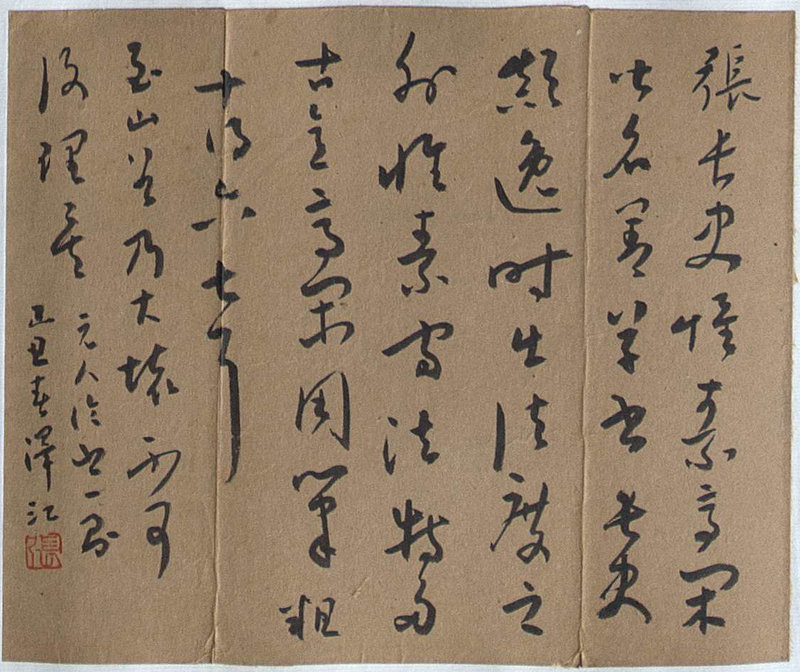 張長史懷素高閑
皆名善草書長史
顛逸时出法度之
外懷素守法特多
古意高閑用筆粗
十得六七耳
至山谷乃大壞不可
復理矣
元人论书一则
己丑春澤江
張